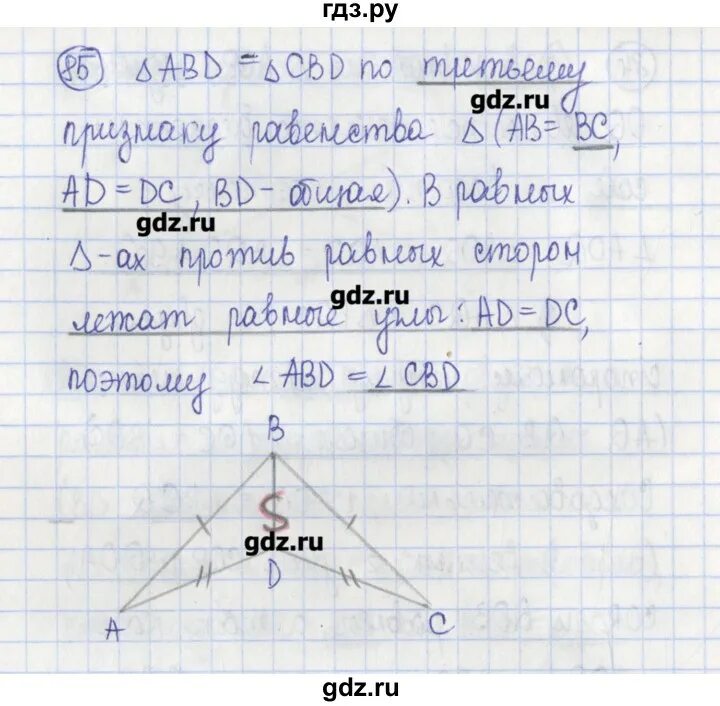 гдз.ру
85 Δ ABD = Δ CBD по третьему
gdz.ru
признаку равенства Δ (AB = BC,
AD = DC, BD - общая). В равных
gdz.ru
Δ-ах против равных сторон
gdz.ru
лежат равные углы: AD = DC,
поэтому ∠ ABD = ∠ CBD
B
gdz.ru
D
A
C
gdz.ru